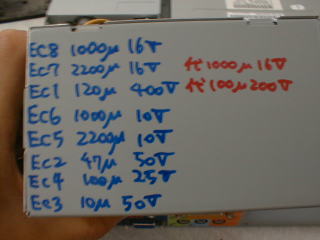 EC8 1000μ 16V
EC7 2200μ 16V 代1000μ 16V
EC1 120μ 400V 代100μ200V
EC6 1000μ 10V
EC5 2200μ 10V
EC2 47μ 50V
EC4 100μ 25V
EC3 10μ 50V